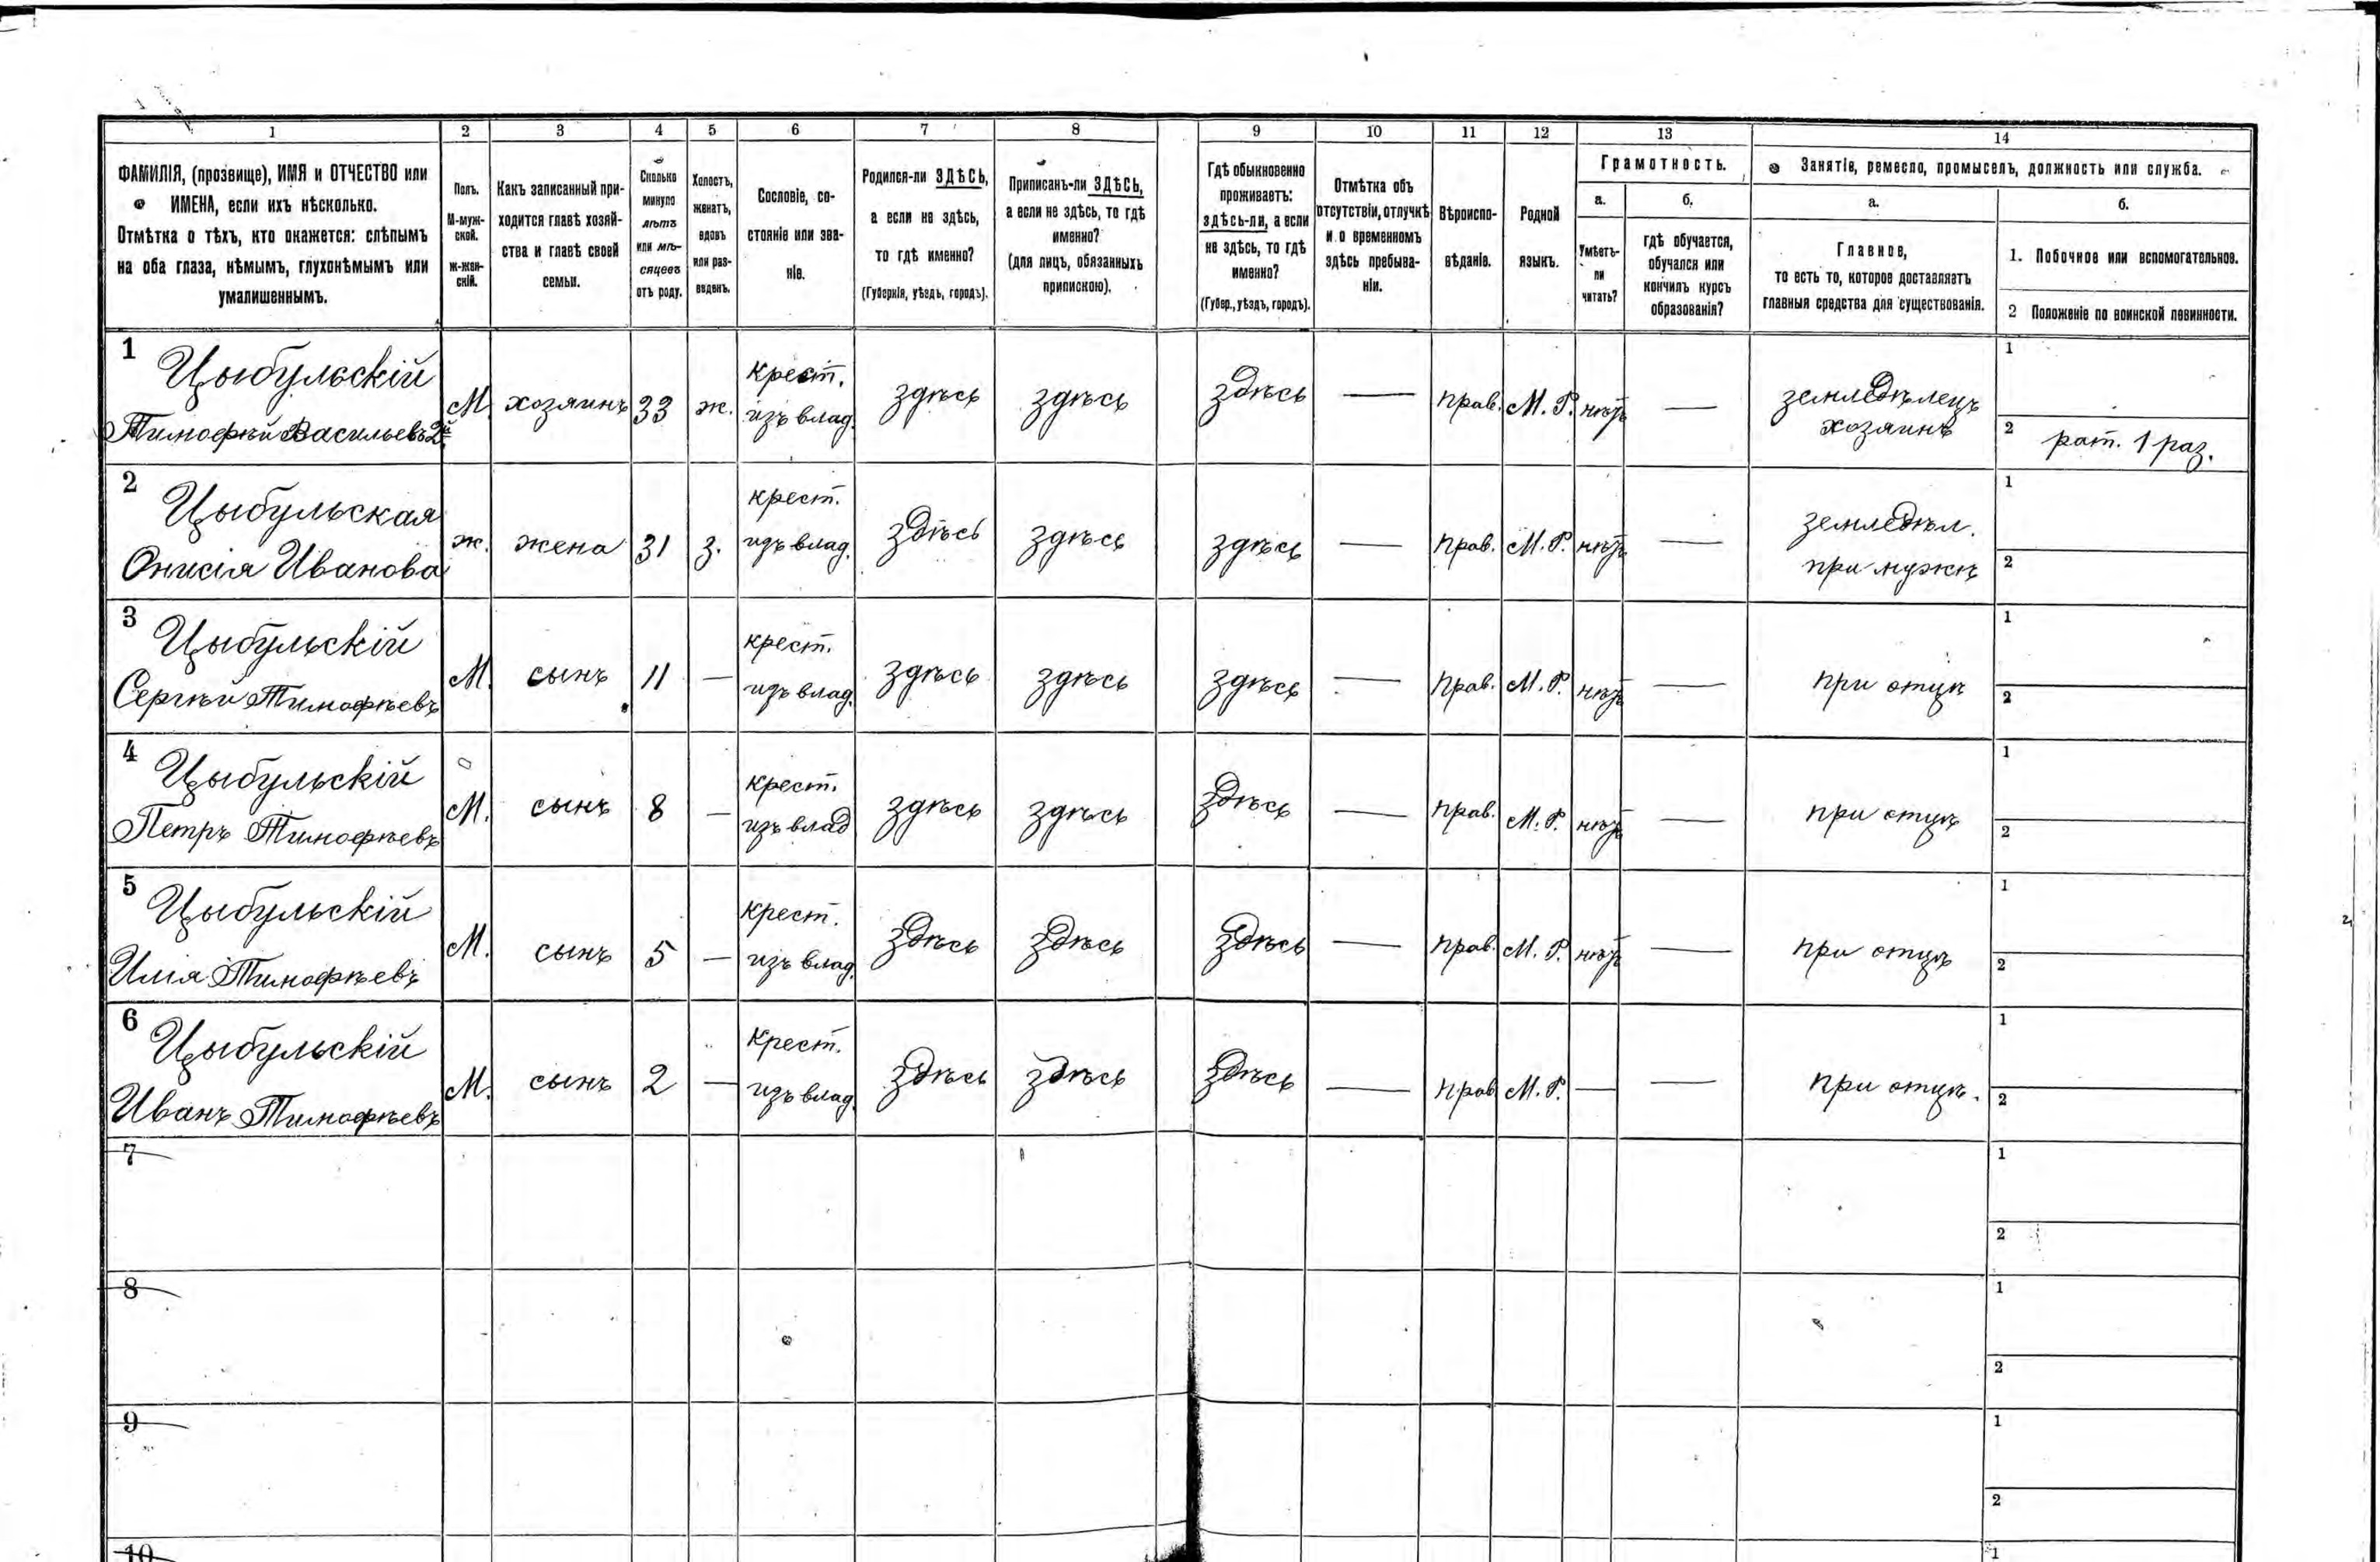 1 2 3 4 5 6 7 8 9 10 11 12 13 14
ФАМИЛІЯ, (прозвище), ИМЯ и ОТЧЕСТВО или
ИМЕНА, если ихъ нѣсколько.
Отмѣтка о тѣхъ, кто окажется: слѣпымъ
на оба глаза, нѣмымъ, глухонѣмымъ или
умалишеннымъ.
Полъ.
М-муж-
ской.
Ж-жен-
скій.
Какъ записанный при-
ходится главѣ хозяй-
ства и главѣ своей
семьи.
Сколько
минуло
лѣтъ
или мѣ-
сяцевъ
отъ роду.
Холостъ,
женатъ,
вдовъ
или раз-
веденъ.
Сословіе, со-
стояніе или зва-
ніе.
Родился-ли ЗДѢСЬ,
а если не здѣсь,
то гдѣ именно?
(Губернія, уѣздъ, городъ).
Приписанъ-ли ЗДѢСЬ,
а если не здѣсь, то гдѣ
именно?
(для лицъ, обязанныхъ
припискою).
Гдѣ обыкновенно
проживаетъ:
здѣсь-ли, а если
не здѣсь, то гдѣ
именно?
(Губер., уѣздъ, городъ).
Отмѣтка объ
отсутствіи, отлучкѣ
и о временномъ
здѣсь пребыва-
ніи.
Вѣроиспо-
вѣданіе.
Родной
языкъ.
Грамотность.
а.
Умѣетъ-
ли
читать?
б.
гдѣ обучается,
обучался или
кончилъ курсъ
образованія?
Занятіе, ремесло, промыселъ, должность или служба.
а.
Главное,
то есть то, которое доставляетъ
главныя средства для существованія.
б.
1. Побочное или вспомогательное.
2 Положеніе по воинской повинности.
1 Цыбульскій
Тимофѣй Васильевъ 2й
М. хозяинъ 33 ж.
крест.
изъ влад.
здѣсь здѣсь здѣсь — прав. М. Р. нѣтъ —
земледѣлецъ
хозяинъ
1
2 рат. 1 раз.
2 Цыбульская
Онисія Иванова
ж. жена 31 з.
крест.
изъ влад.
здѣсь здѣсь здѣсь — прав. М. Р. нѣтъ —
земледѣл.
при мужѣ
1
2
3 Цыбульскій
Сергѣй Тимофѣевъ
М. сынъ 11 —
крест.
изъ влад.
здѣсь здѣсь здѣсь — прав. М. Р. нѣтъ — при отцѣ
1
2
4 Цыбульскій
Петръ Тимофѣевъ
М. сынъ 8 —
крест.
изъ влад
здѣсь здѣсь здѣсь — прав. М. Р. нѣтъ — при отцѣ
1
2
5 Цыбульскій
Илія Тимофѣевъ
М. сынъ 5 —
крест.
изъ влад.
здѣсь здѣсь здѣсь — прав. М. Р. нѣтъ — при отцѣ
1
2
6 Цыбульскій
Иванъ Тимофѣевъ
М. сынъ 2 —
Крест.
изъ влад.
здѣсь здѣсь здѣсь — прав М. Р. — — при отцѣ.
1
2
7
1
2
8
1
2
9
1
2
10
1